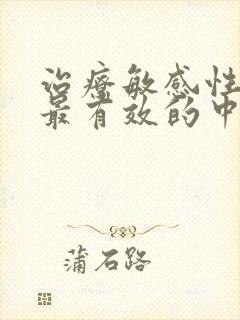 治疗敏感性
最有效的中
蒲石路